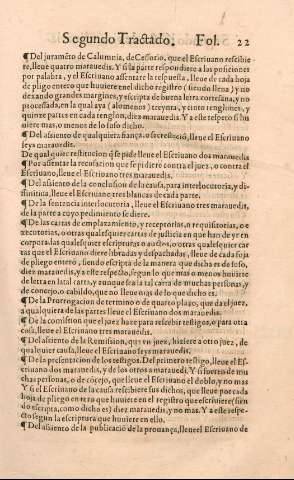 Segundo Tractado. Fol. 22
¶ Del juramẽto de Calumnia, de Cesorio, que el Escriuano rescibiere, lleue quatro marauedis. Y si la parte respondiere a las posiciones
por palabra, y el Escriuano assentare la respuesta, lleue de cada hoja
de pliego entero que huuiere enel dicho registro (siendo llena) y no
dexando grandes margines, y escripta de buena letra cortesana, y no
processada, en la qual aya (alo menos) treynta, y cinco renglones, y
quinze partes en cada renglon, diez marauedis. Y a este respecto si huuiere mas, o menos de lo suso dicho.
¶ Del assiento de qualquiera fiança, o secresto, lleue el Escriuano
seys marauedis.
De qualquier restitucion q̃ se pide lleue el Escriuano dos marauedis
¶ Por assentar la recusacion que se pidiere contra el juez, o contra el
Escriuano, lleue el Escriuano tres marauedis.
¶ Del assiento de la conclusion de la causa, para interlocutoria, y diffinitiua, lleue el Escriuano tres blancas de cada parte.
¶ De la sentencia interlocutoria, lleue el Escriuano tres marauedis,
de la parte a cuyo pedimiento se diere.
¶ De las cartas de emplazamiento, y receptorias, o requisitorias, o executorias, o otras qualesquier cartas de justicia en que han de yr encorporadas qualesquier escripturas o auctos, o otras qualesquier cartas que el Escriuano diere libradas y despachadas, lleue de cada hoja
de pliego entero, siendo escripta de la manera que dicha es de suso,
diez marauedis, y a este respecto, segun lo que mas o menos huuiere
de letra en la tal carta, y aunque sea la tal carta de muchas personas, y
de concejo, o cabildo, que no lleue mas de lo que dicho es.
¶ De la Prorrogacion de termino o de quarto plazo, que da el juez,
a qualquiera de las partes lleue el Escriuano dos marauedis.
¶ De la comission que el juez haze para rescebir testigos, o para otra
cosa, lleue el Escriuano tres marauedis.
¶ Del assiento de la Remission, que vn juez, hiziere a otro juez, de
qualquier causa, lleue el Escriuano seys marauedis.
¶ De la presentacion de los testigos. Del primero testigo, lleue el Escriuano dos marauedis, y de los otros a marauedi. Y si fueren de muchas personas, o de cõcejo, que lleue el Escriuano el doblo, y no mas
Y si el Escriuano de la causa rescibiere sus dichos, que lleue por cada
hoja de pliego entero que huuiere en el registro que escriuiere (siendo escripta, como dicho es) diez marauedis, y no mas. Y a este respecto segun la escriptura que huuiere en ello.
¶ Del assiento de la publicaciõ de la prouança, lleue el Escriuano de